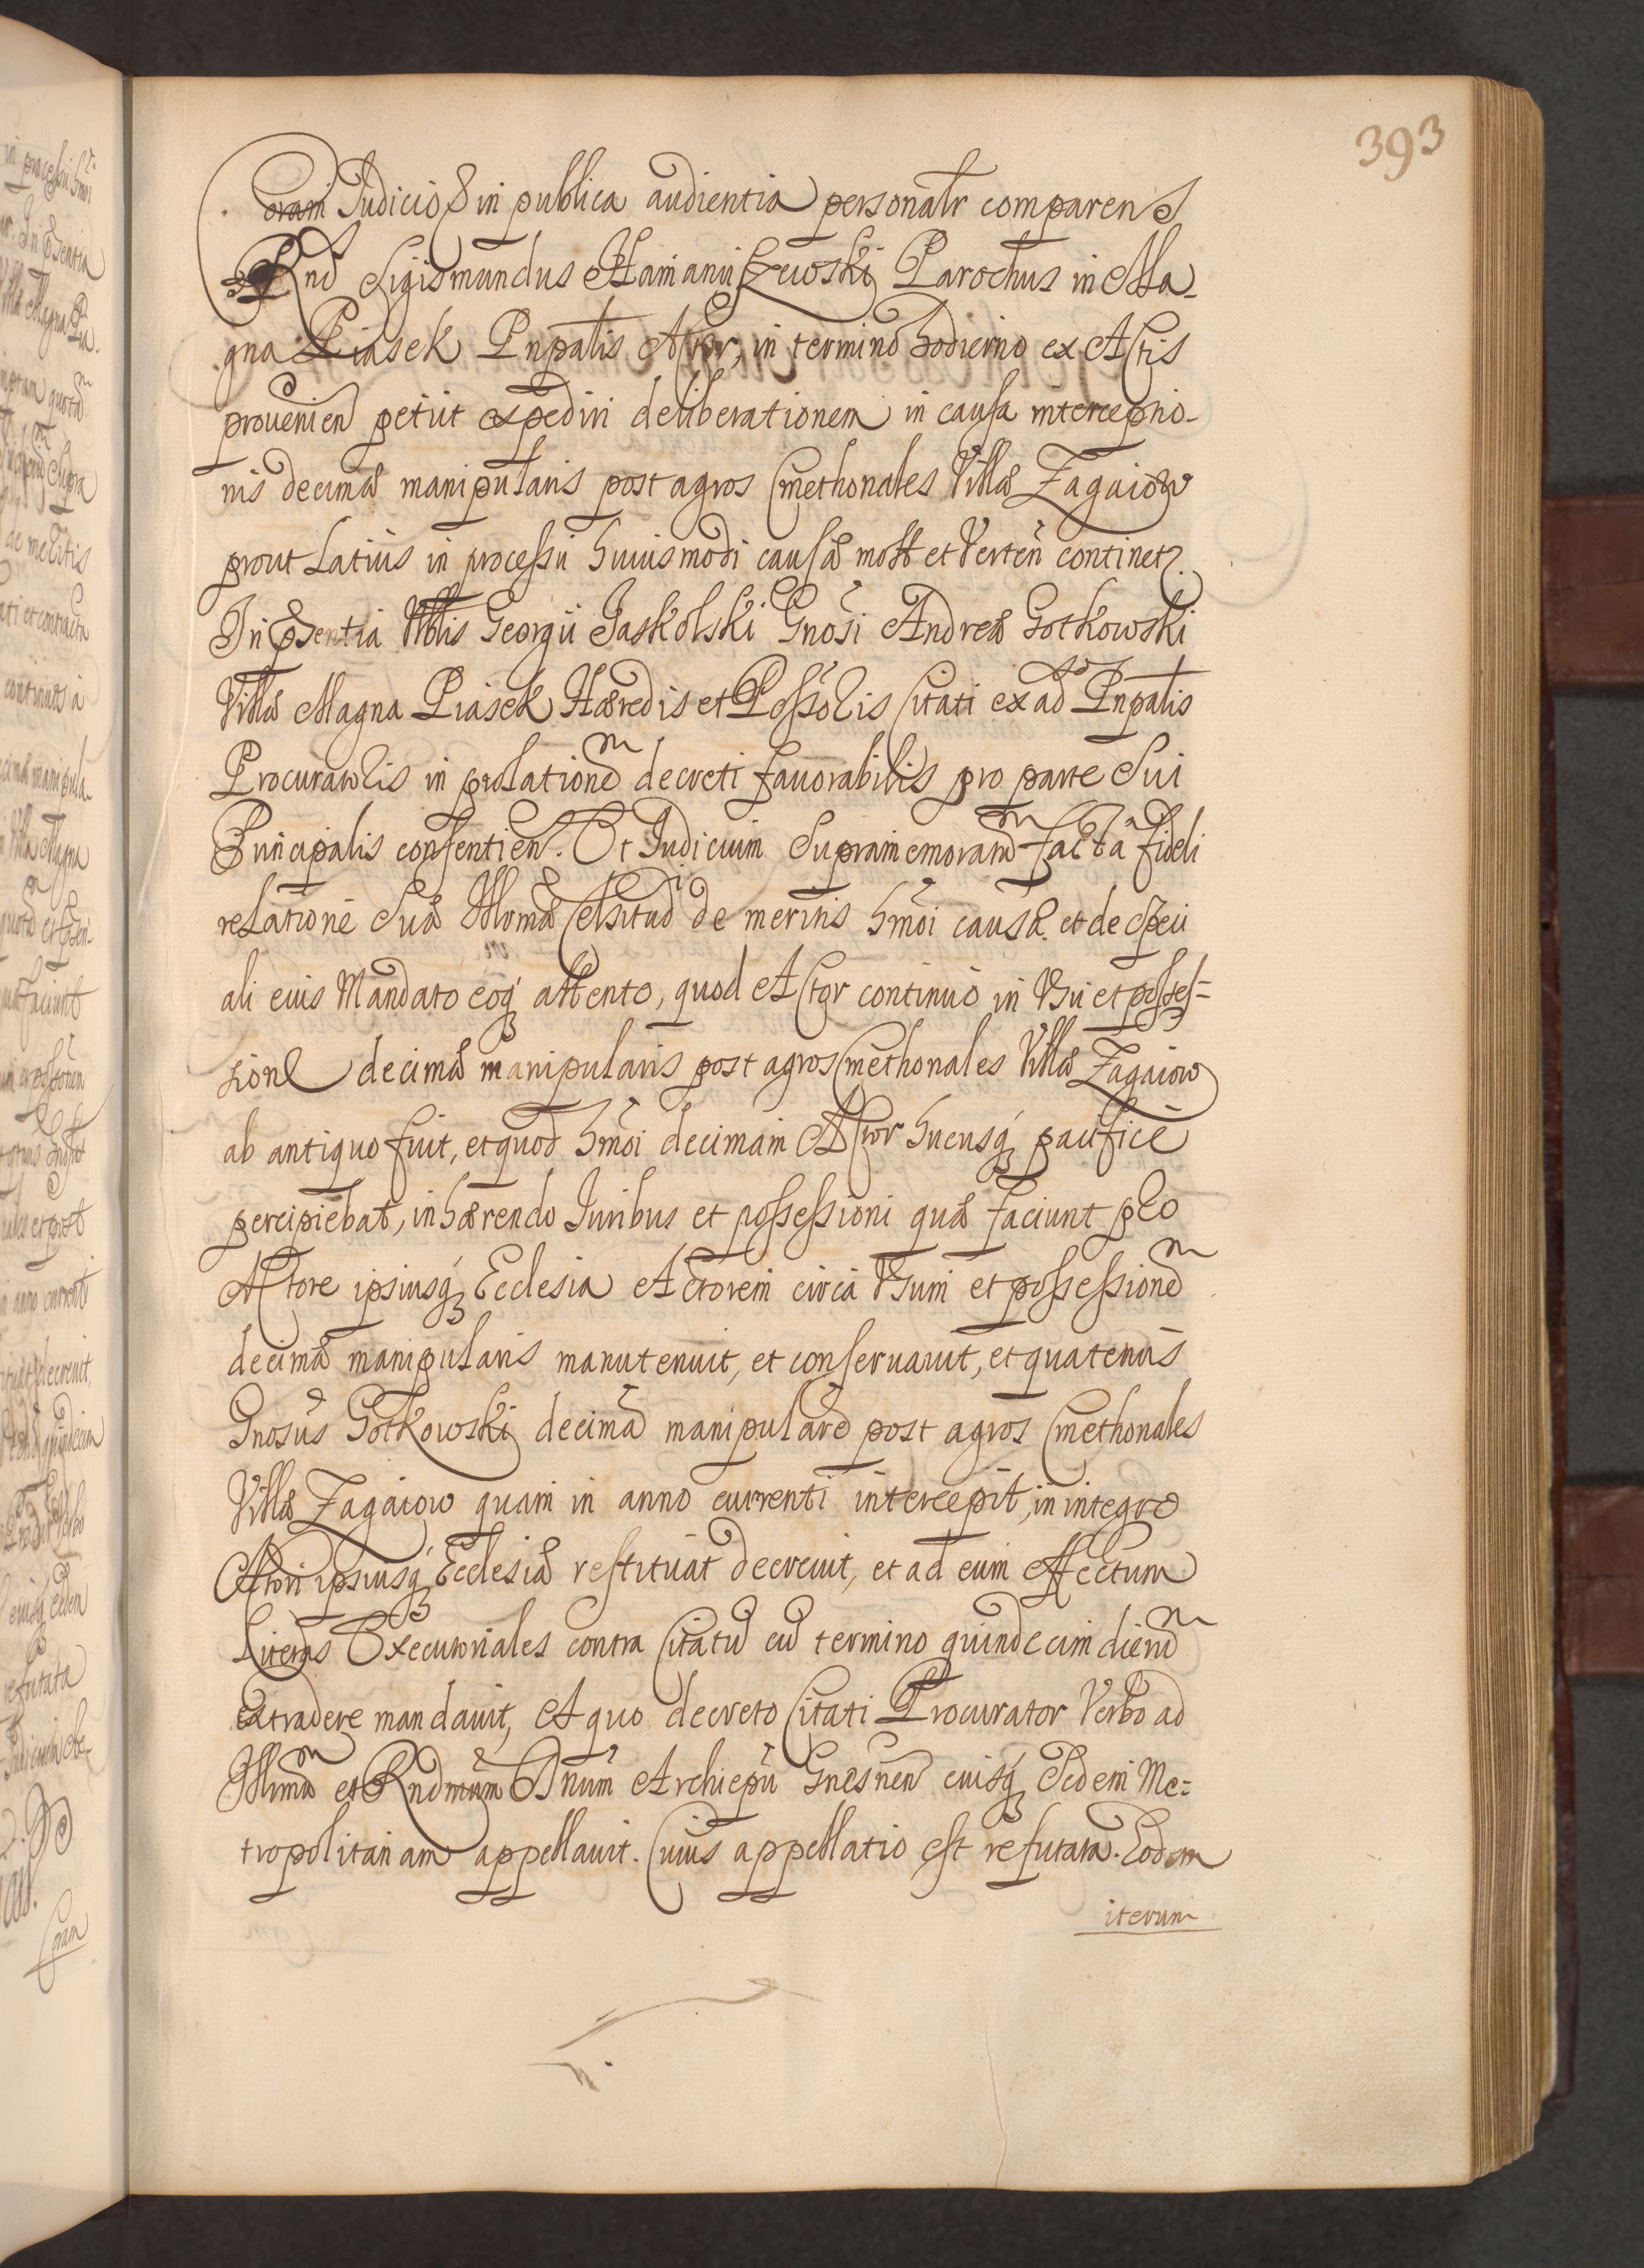 393
Coram Judicio & in publica audientia personalr comparens
Rnd Sigismundus Hamaniszewski Parochus in Ma-
gna Piasek Pnpalis Actor, in termino hodierno ex Actis
provenien petiit expediri deliberationem in causa interceptio-
nis decimæ manipularis post agros Cmethonales Villæ Zagaiow
prout Latius in processu huiusmodi causæ mott et Verten continetr.
In pñsentia Nblis Georgii Jaskolski Gnosi Andreæ Gotkowski
Villæ Magna Piasek Hæredis et Possoris Citati ex ad Pnpalis
Procuratoris in prolationem decreti favorabilis pro parte Sui
Principalis consentien. Et Judicium Supramemoratum facta fideli
relatione Suæ Illmæ Celsitud de meritis hmoi causæ. et de Speci
ali eius Mandato eoq attento, quod Actor continuo in Usu et posses=
sione decimæ manipularis post agros Cmethonales Villæ Zagaiow
ab antiquo fuit, et quod hmoi decimam Actor hucusq pacifice
percipiebat, inhærendo Juribus et possessioni quæ faciunt pro
Actore ipsiusq Ecclesia Actorem circa Usum et possessionem
decimæ manipularis manutenuit, et conservavit, et quatenus
Gnosus Gotkowski decimā manipularē post agros Cmethonales
Villæ Zagaiow quam in anno currenti intercepit, in integro
Actori ipsiusq Ecclesiæ restituat decrevit, et ad eum effectum
Literas Executoriales contra Citatū cū termino quindecim dierum
extradere mandavit, A quo decreto Citati Procurator Verbo ad
Illmum et Rndmum Dnum Archiepū Gnesnen eiusq Sedem Me=
tropolitanam appellavit. Cuius appellatio est refutata. Eodem
iterum